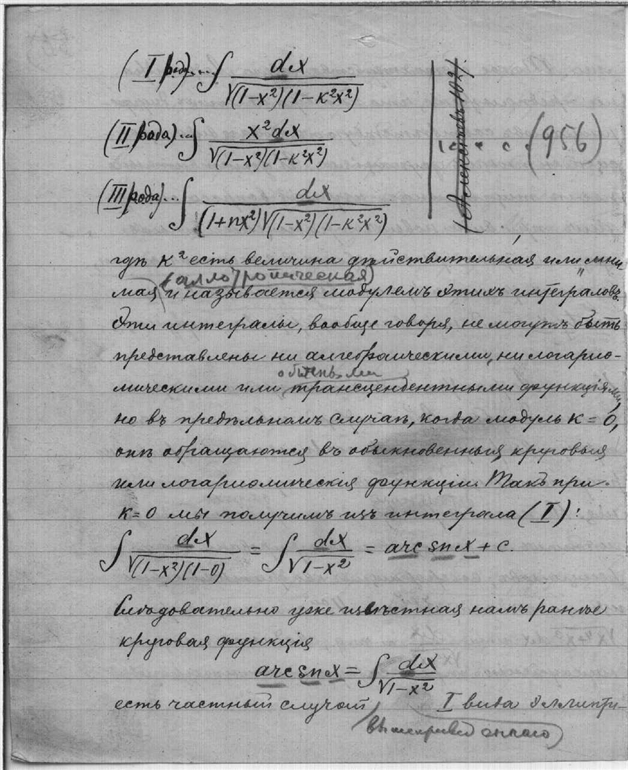 (I рода)... ∫ dx / √(1-x²)(1-k²x²)
(II рода)... ∫ x²dx / √(1-x²)(1-k²x²)
(956)
(III рода)... ∫ dx / (1+nx²)√(1-x²)(1-k²x²)
гдѣ k² есть величина дѣйствительная или мни
мая и называется модулемъ этихъ интеграловъ
Эти интегралы, вообще говоря, не могутъ быть
представлены ни алгебраическими, ни логариө-
мическими или трансцендентными функціями,
но въ предѣльномъ случаѣ, когда модуль k=0,
онѣ обращаются въ обыкновенныя круговыя
или логариөмическія функціи. Такъ при
k=0 мы получимъ изъ интеграла (I):
∫ dx / √(1-x²)(1-0) = ∫ dx / √1-x² = arc sn x + c.
Слѣдовательно уже извѣстная намъ ранѣе
круговая функція
arc sn x = ∫ dx / √1-x²
есть частный случай I вида эллипти-